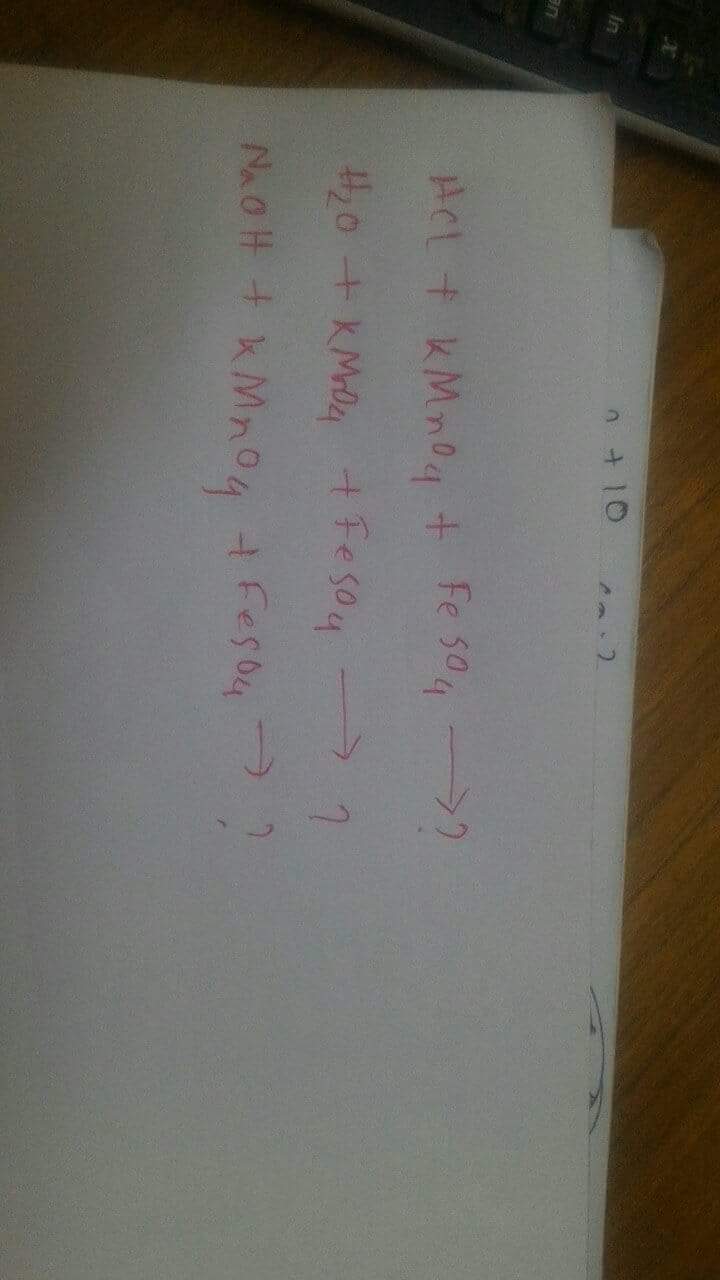 HCl + KMnO4 + FeSO4 → ?
H2O + KMnO4 + FeSO4 → ?
NaOH + KMnO4 + FeSO4 → ?
n + 10
x
ln